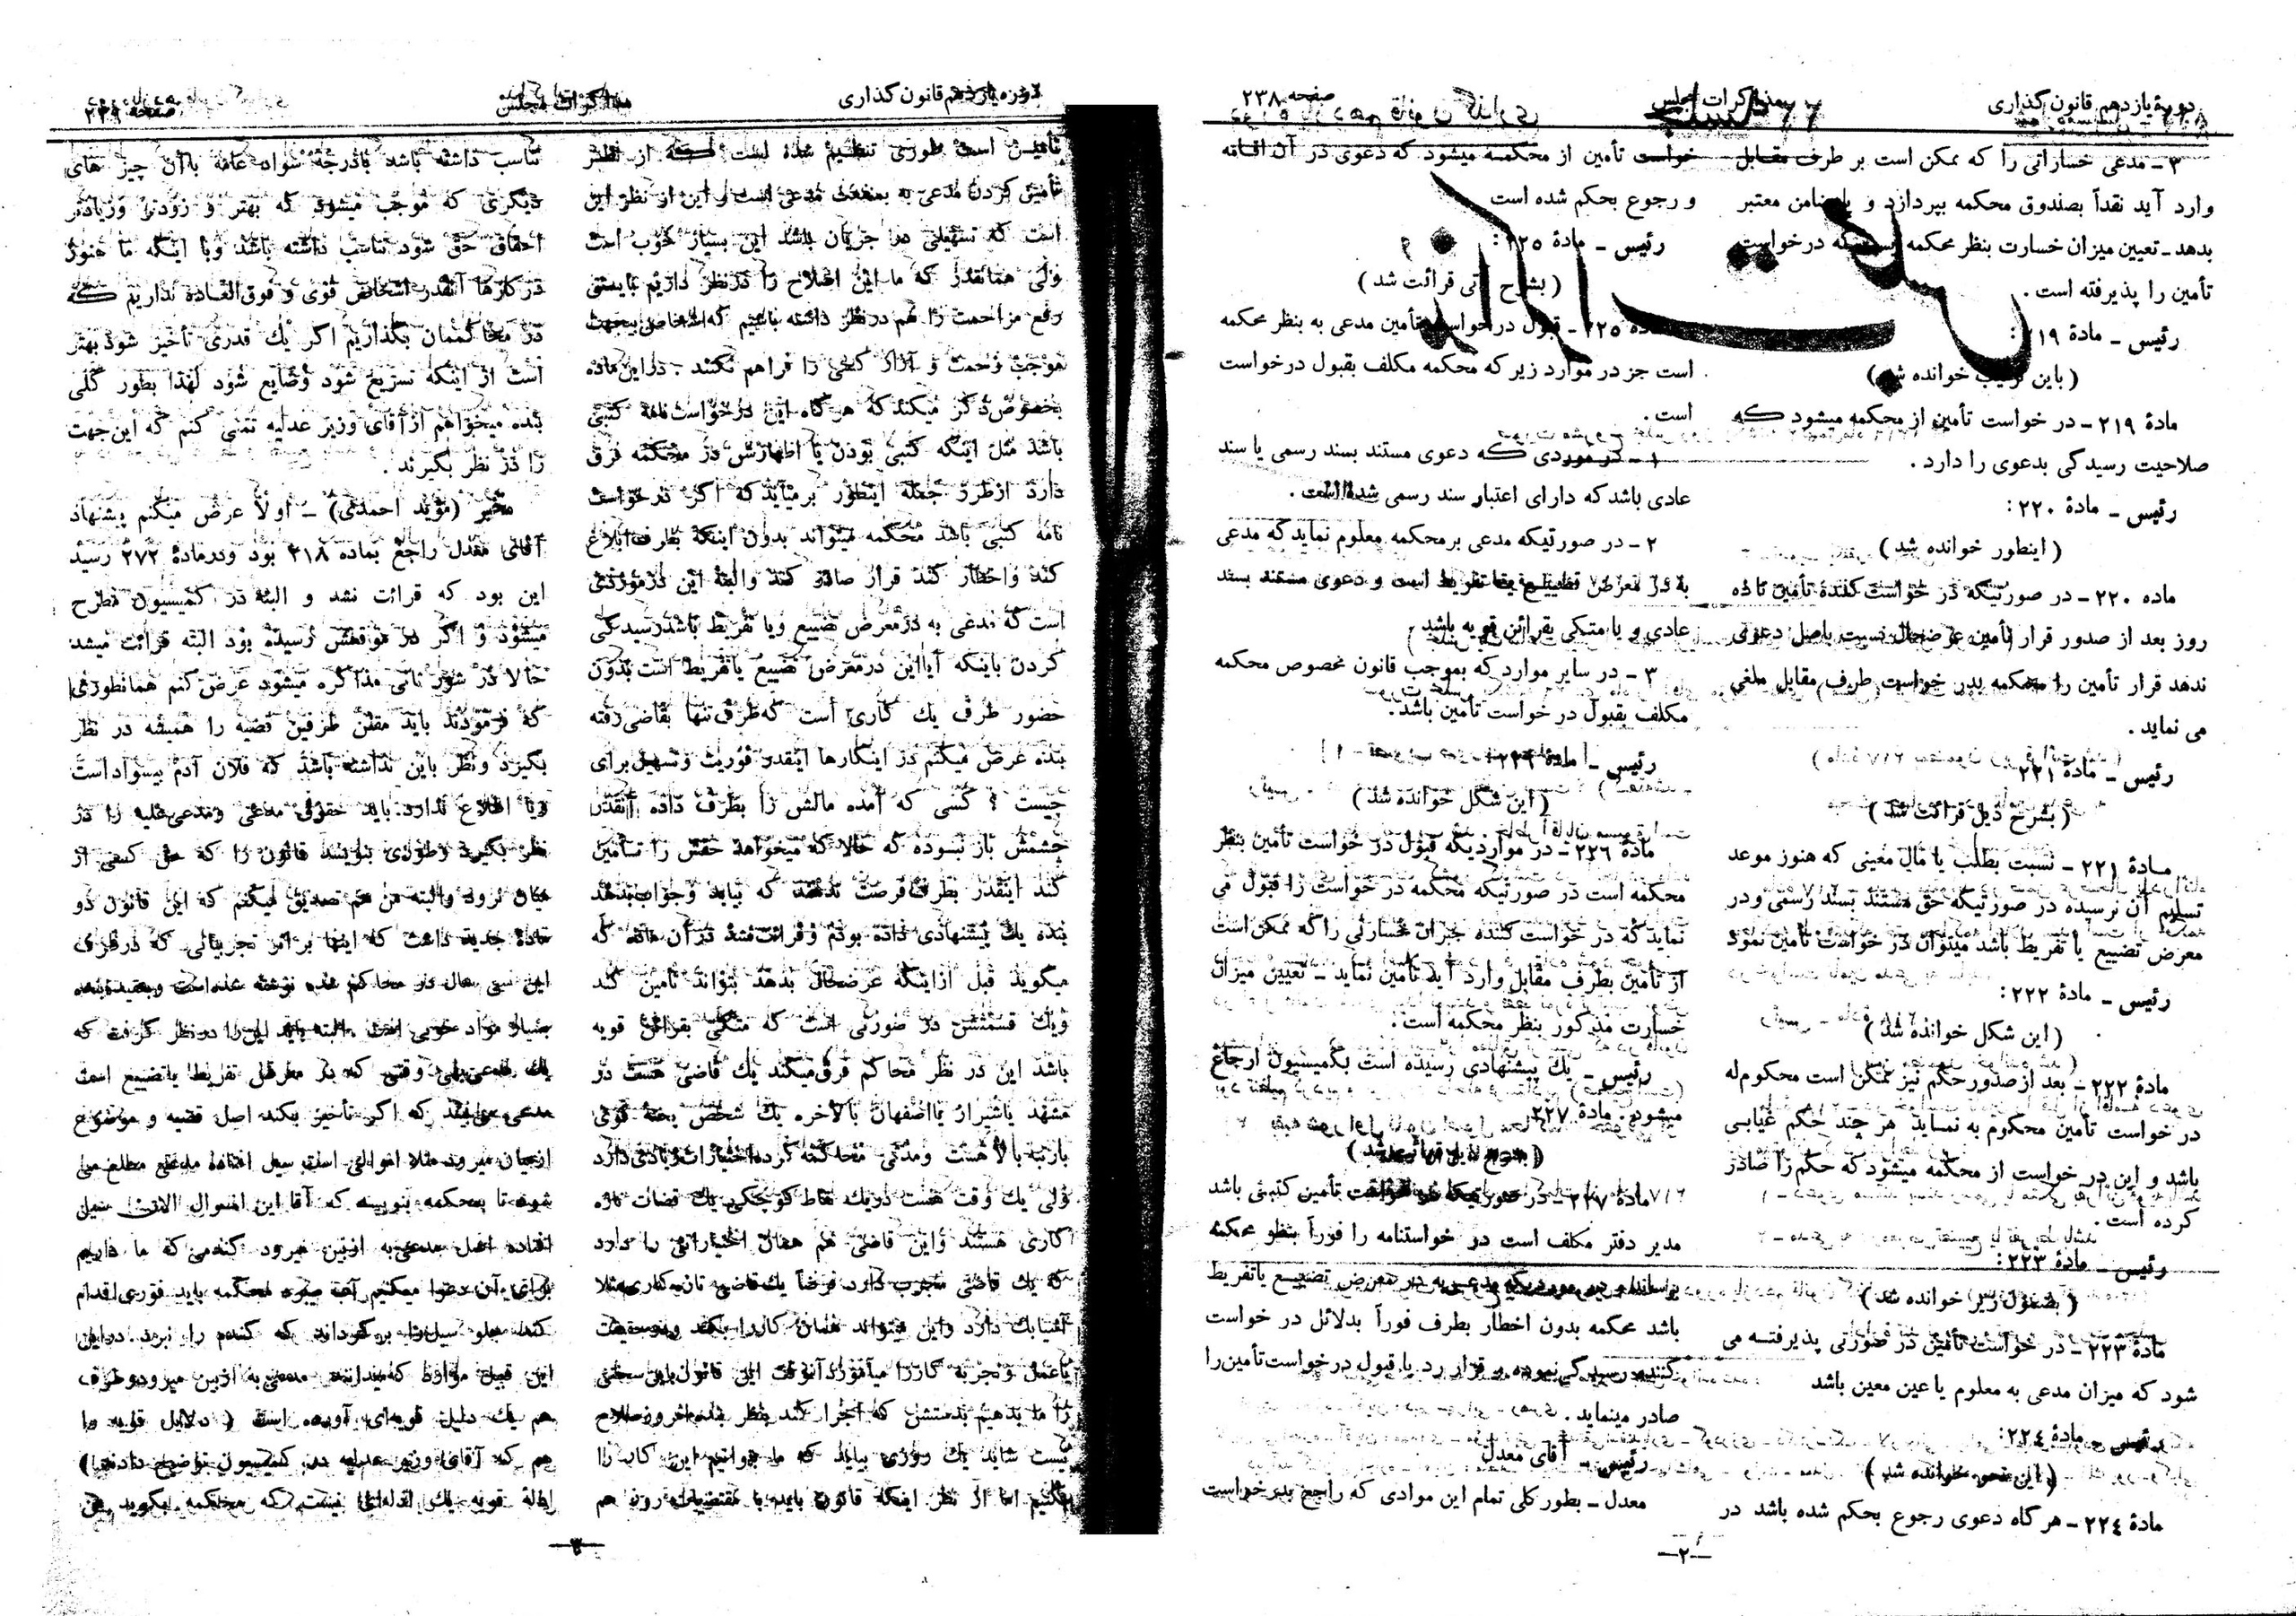 دورهٔ یازدهم قانون گذاری
مذاکرات مجلس
صفحه ۲۳۸
۳ - مدعی خساراتی را که ممکن است بر طرف مقابل
وارد آید نقداً بصندوق محکمه بپردازد و یا ضامن معتبر
بدهد - تعیین میزان خسارت بنظر محکمه است که درخواست
تأمین را پذیرفته است .
رئیس - مادهٔ ۲۱۹ :
(باین ترتیب خوانده شد)
مادهٔ ۲۱۹ - در خواست تأمین از محکمه میشود که
صلاحیت رسیدگی بدعوی را دارد .
رئیس - مادهٔ ۲۲۰ :
(اینطور خوانده شد)
ماده ۲۲۰ - در صورتیکه در خواست کنندهٔ تأمین تا ده
روز بعد از صدور قرار تأمین عرضحال نسبت باصل دعوی
ندهد قرار تأمین را محکمه بدر خواست طرف مقابل ملغی
می نماید .
رئیس - مادهٔ ۲۲۱
(بشرح ذیل قرائت شد)
مادهٔ ۲۲۱ - نسبت بطلب یا مال معینی که هنوز موعد
تسلیم آن نرسیده در صورتیکه حق مستند بسند رسمی و در
معرض تضییع یا تفریط باشد میتوان در خواست تأمین نمود
رئیس - مادهٔ ۲۲۲ :
(این شکل خوانده شد)
مادهٔ ۲۲۲ - بعد از صدور حکم نیز ممکن است محکوم له
در خواست تأمین محکوم به نماید هر چند حکم غیابی
باشد و این در خواست از محکمه میشود که حکم را صادر
کرده است .
رئیس - مادهٔ ۲۲۳ :
(بضمول زیر خوانده شد)
مادهٔ ۲۲۳ - در خواست تأمین در صورتی پذیرفته می
شود که میزان مدعی به معلوم یا عین معین باشد
رئیس - مادهٔ ۲۲٤ :
(این نحو خوانده شد)
مادهٔ ۲۲٤ - هر گاه دعوی رجوع بحکم شده باشد در
خواست تأمین از محکمه میشود که دعوی در آن اقامه
و رجوع بحکم شده است
رئیس - مادهٔ ۲۲۵ :
(بشرح آتی قرائت شد)
ماده ۲۲۵ - قبول درخواست تأمین مدعی به بنظر محکمه
است جز در موارد زیر که محکمه مکلف بقبول درخواست
است .
۱ - در موردی که دعوی مستند بسند رسمی یا سند
عادی باشد که دارای اعتبار سند رسمی شده است .
۲ - در صورتیکه مدعی بر محکمه معلوم نماید که مدعی
به در معرض تضییع یا تفریط است و دعوی مستند بسند
عادی و یا متکی بقرائن قویه باشد
۳ - در سایر موارد که بموجب قانون مخصوص محکمه
مکلف بقبول در خواست تأمین باشد .
رئیس - مادهٔ ۲۲٦
(این شکل خوانده شد)
مادهٔ ۲۲٦ - در مواردیکه قبول در خواست تأمین بنظر
محکمه است در صورتیکه محکمه در خواست را قبول می
نماید که در خواست کننده جبران خسارتی را که ممکن است
از تأمین بطرف مقابل وارد آید تأمین نماید - تعیین میزان
خسارت مذکور بنظر محکمه است .
رئیس - یك پیشنهادی رسیده است بکمیسیون ارجاع
میشود . مادهٔ ۲۲۷
(بشرح ذیل قرائت شد)
مادهٔ ۲۲۷ - در صورتیکه در خواست تأمین کتبی باشد
مدیر دفتر مکلف است در خواستنامه را فوراً بنظر محکمه
برساند و در موردیکه مدعی به در معرض تضییع یا تفریط
باشد محکمه بدون اخطار بطرف فوراً بدلائل در خواست
کننده رسیدگی نموده و قرار رد یا قبول درخواست تأمین را
صادر مینماید .
رئیس - آقای معدل
معدل - بطور کلی تمام این موادی که راجع بدرخواست
-۲-
دوره یازدهم قانون گذاری
مذاکرات مجلس
صفحه ۲۳۹
تأمین است طوری تنظیم شده است که از نظر
تأمین کردن مدعی به بمنفعت مدعی است و این از نظر این
است که تسهیلی در جریان باشد این بسیار خوب است
ولی همانقدر که ما این اصلاح را در نظر داریم بایستی
رفع مزاحمت را هم در نظر داشته باشیم که اشخاص بیجهت
موجب زحمت و آزار کسی را فراهم نکنند . در این ماده
بخصوص ذکر میکند که هر گاه این درخواست نامه کتبی
باشد مثل اینکه کتبی بودن یا اظهارش در محکمه فرق
دارد از طرز جمله اینطور بر میآید که اگر درخواست
نامه کتبی باشد محکمه میتواند بدون اینکه بطرف ابلاغ
کند و اخطار کند قرار صادر کند والبته این در موردی
است که مدعی به در معرض تضییع و یا تفریط باشد رسیدگی
کردن باینکه آیا این در معرض تضییع یا تفریط است بدون
حضور طرف یك کاری است که طرف تنها بقاضی رفته
بنده عرض میکنم در اینکارها اینقدر فوریت و تسهیل برای
چیست ؟ کسی که آمده مالش را بطرف داده آنقدر
چشمش باز نبوده که حالا که میخواهد حقش را تأمین
کند اینقدر بطرف فرصت ندهد که بیاید و جواب بدهد
بنده یك پیشنهادی داده بودم و قرائت نشد در آن ماده که
میگوید قبل از اینکه عرضحال بدهد بتواند تأمین کند
ویك قسمتش در صورتی است که متکی بقرائن قویه
باشد این در نظر محاکم فرق میکند یك قاضی هست در
مشهد یا شیراز یا اصفهان بالاخره یك شخص پخته گوئی
با رتبه بالا هست و مدتی محاکمه کرده اختیارات زیادی دارد
ولی یك وقت هست در یك نقاط کوچکی یك قضات تازه
کاری هستند و این قاضی هم همان اختیاراتی را دارد
که یك قاضی مجرب دارد فرضاً یك قاضی تازه کاری مثلا
آشنایك دارد و این میتواند همان کار را بکند و
با عمل و تجربه کار را میآموزد آنوقت این قانون باین سختی
را ما بدهیم بدستش که اجرا کند بنظر بنده امروز صلاح
نیست شاید یك روزی بیاید که ما بتوانیم این کار را
بکنیم اما از نظر اینکه قانون باید با مقتضیات روز هم
تناسب داشته باشد با درجه سواد عامه با آن چیز های
دیگری که موجب میشود که بهتر و زودتر و زیادتر
احقاق حق شود تناسب داشته باشد و با اینکه ما هنوز
در کارها آنقدر اشخاص قوی و فوق العاده نداریم که
در محاکممان بگذاریم اگر یك قدری تأخیر شود بهتر
است از اینکه تسریع شود و ضایع شود لهذا بطور کلی
بنده میخواهم از آقای وزیر عدلیه تمنی کنم که این جهت
را در نظر بگیرند .
مخبر (مؤید احمدی) - اولاً عرض میکنم پیشنهاد
آقای معدل راجع بماده ۲۱۸ بود و در مادهٔ ۲۷۲ رسید
این بود که قرائت نشد و البته در کمیسیون مطرح
میشود و اگر در موقعش رسیده بود البته قرائت میشد
حالا در شور ثانی مذاکره میشود عرض کنم همانطوری
که فرمودند باید مقنن طرفین قضیه را همیشه در نظر
بگیرد و نظر باین نداشته باشد که فلان آدم بیسواد است
ویا اطلاع ندارد . باید حقوق مدعی و مدعی علیه را در
نظر بگیرد و طوری بنویسد قانون را که حق کسی از
میان نرود والبته من هم تصدیق میکنم که این قانون دو
مادهٔ جدید داشت که اینها بر اثر تجربیاتی که در ظرف
این سی سال در محاکم شده نوشته شده است و بعقیده بنده
بسیار مواد خوبی است . البته باید این را در نظر گرفت که
یك مدعی بهی وقتی که در معرض تفریط یا تضییع است
مدعی می بیند که اگر تأخیر بکند اصل قضیه و موضوع
از میان میرود مثلا اموالی است سیل افتاده مدعی مطلع می
شود تا بمحکمه بنویسد که آقا این اموال الان سیل
افتاده اصل مدعی به از بین میرود گندمی که ما داریم
برای آن دعوا میکنیم آب میبرد محکمه باید فوری اقدام
کند جلو سیل را بر گرداند که گندم را نبرد . در این
این قبیل موارد که میدانند مدعی به از بین میرود و طرف
هم یك دلیل قویه ای آورده است ( دلایل قویه را
هم که آقای وزیر عدلیه در کمیسیون توضیح دادند )
ادلهٔ قویه یك ادله ای نیست که محکمه بگوید من
-۳-